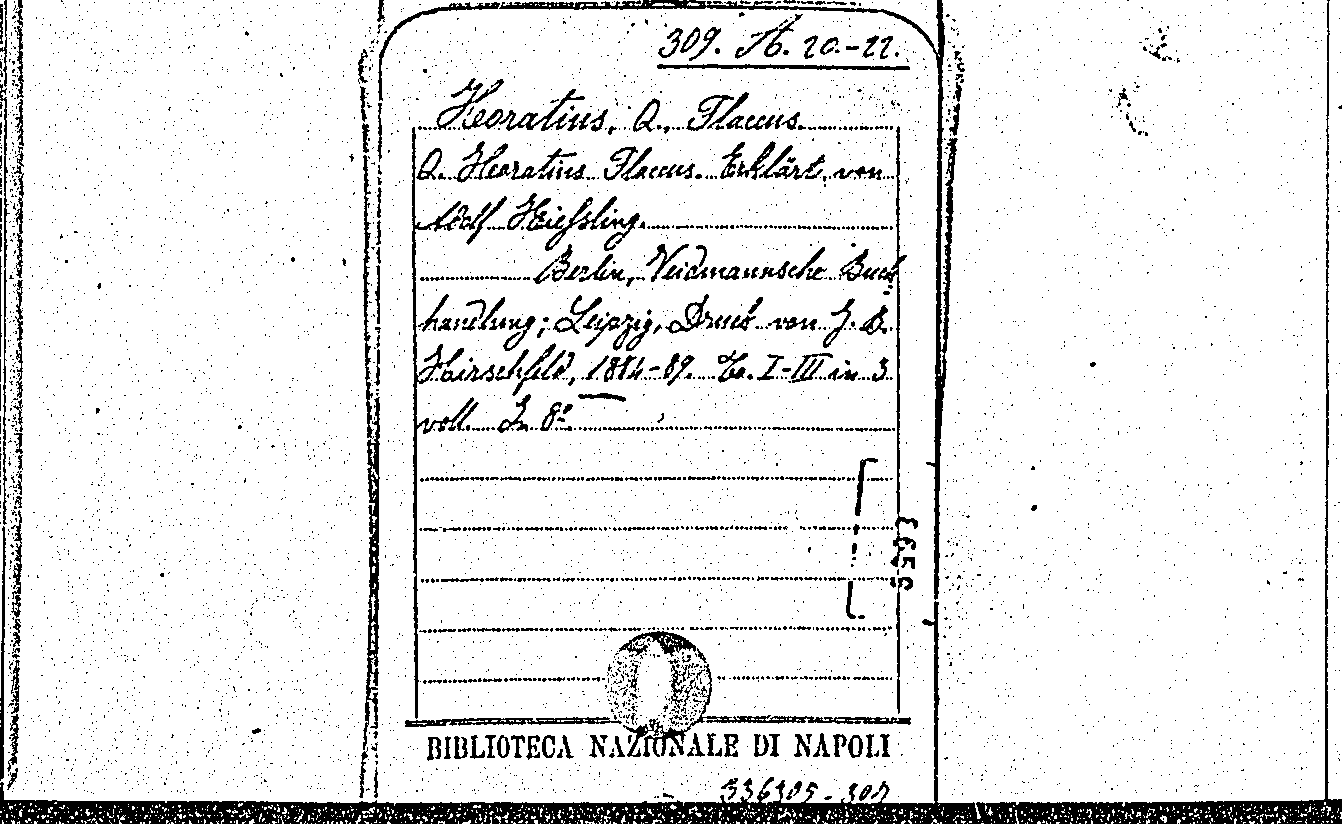 309. A. 20.-22.
Horatius, Q., Flaccus.
Q. Horatius Flaccus. Erklärt von
Adolf Kiessling.
Berlin, Weidmannsche Buch
handlung; Leipzig, Druck von J. B.
Hirschfeld, 1884-89. To. I-III in 3
voll. In 8º
BIBLIOTECA NAZIONALE DI NAPOLI
336305-307